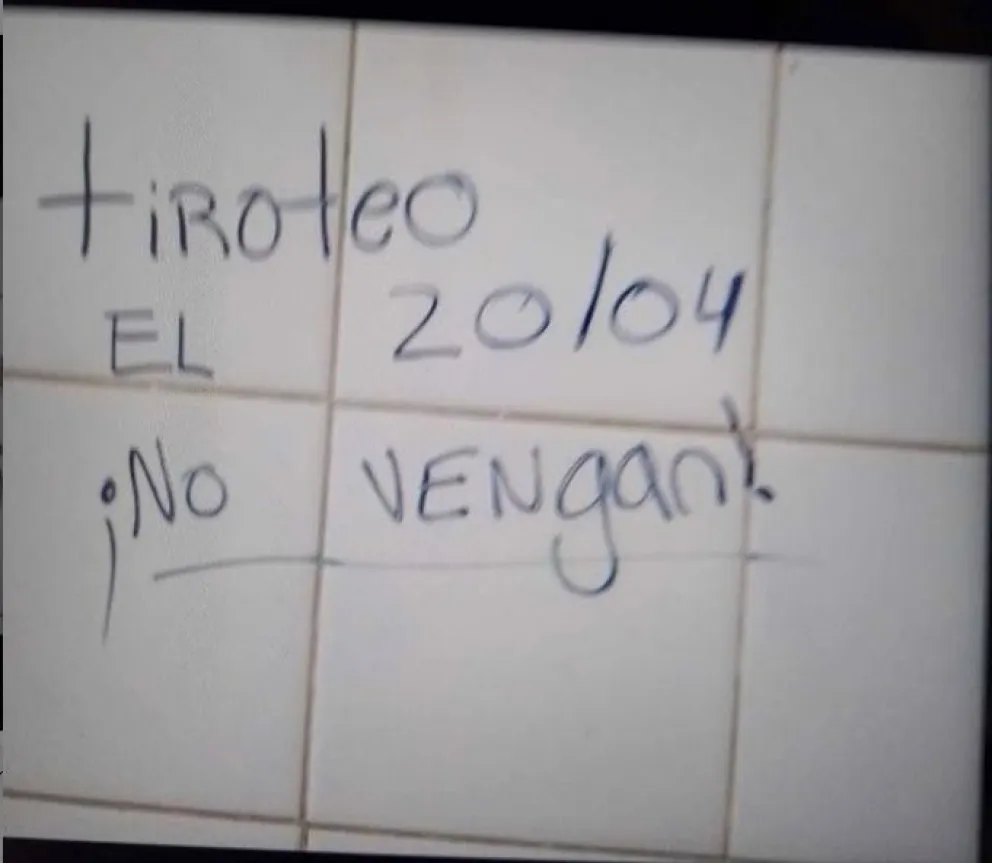 tiRoteo
EL 20/04
¡No VENgan!